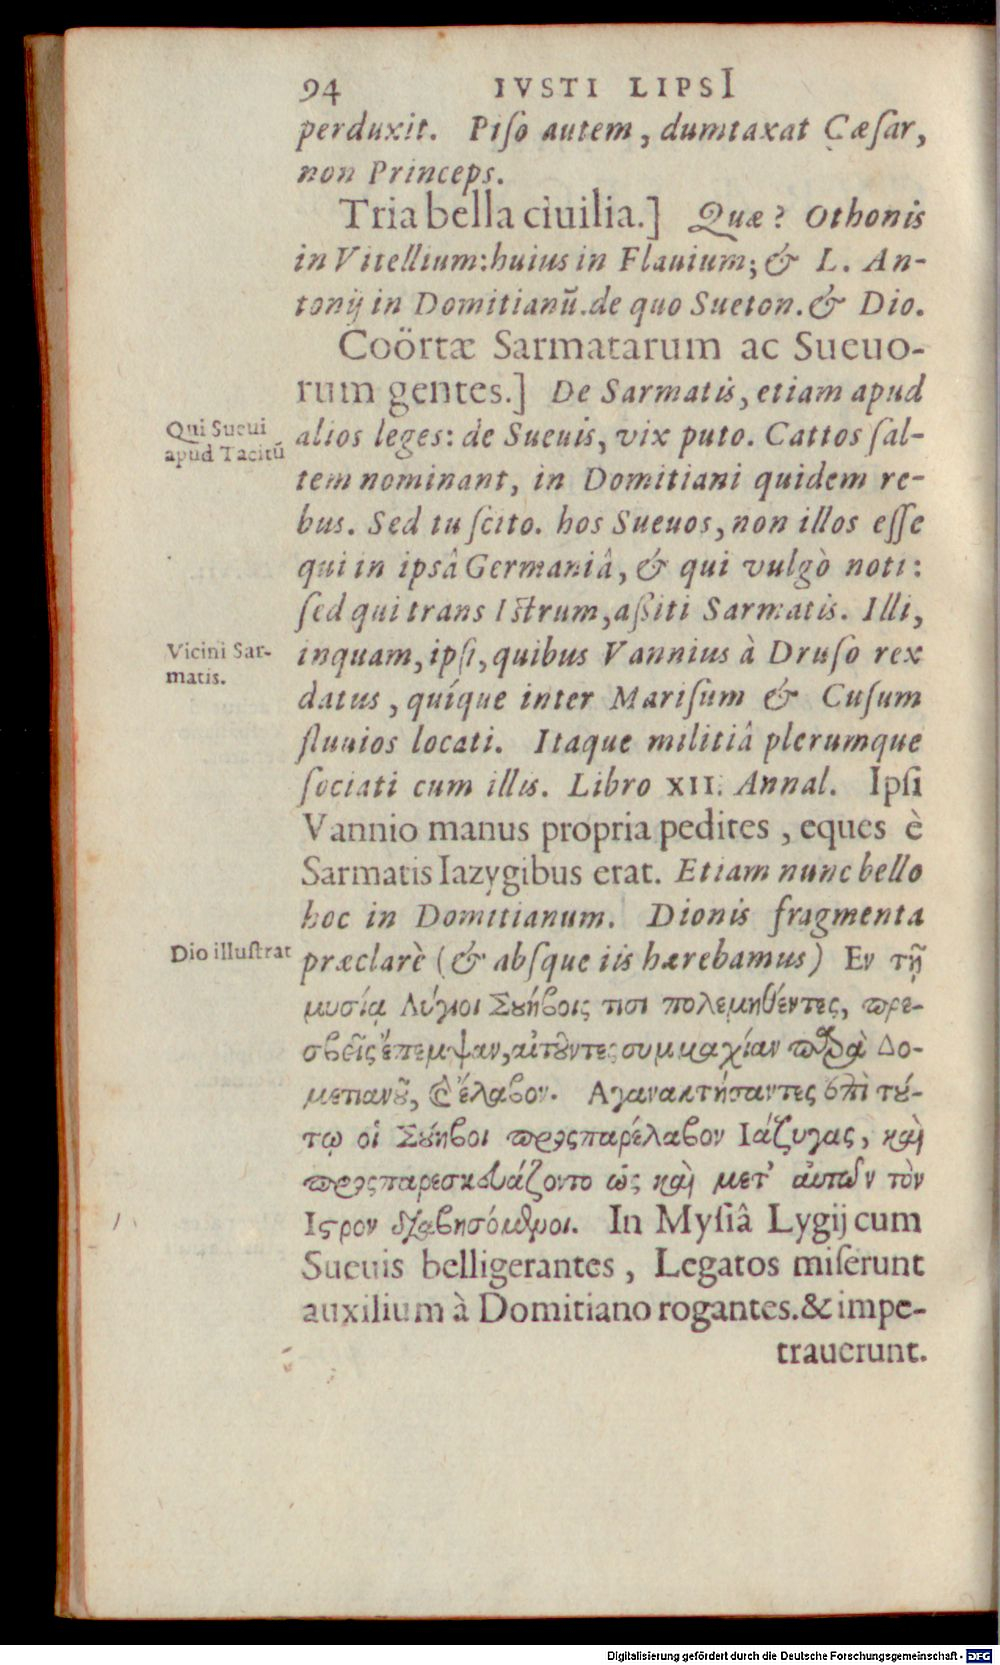 94 IVSTI LIPSI
perduxit. Piſo autem, dumtaxat Cæſar,
non Princeps.
Tria bella ciuilia.] Quæ? Othonis
in Vitellium: huius in Flauium; & L. An-
tonij in Domitianū. de quo Sueton. & Dio.
Coörtæ Sarmatarum ac Sueuo-
rum gentes.] De Sarmatis, etiam apud
Qui Sueui
apud Tacitū
alios leges: de Sueuis, vix puto. Cattos ſal-
tem nominant, in Domitiani quidem re-
bus. Sed tu ſcito. hos Sueuos, non illos eſſe
qui in ipsâ Germaniâ, & qui vulgò noti:
ſed qui trans Iſtrum, aßiti Sarmatis. Illi,
Vicini Sar-
matis.
inquam, ipſi, quibus Vannius à Druſo rex
datus, quíque inter Mariſum & Cuſum
fluuios locati. Itaque militiâ plerumque
ſociati cum illis. Libro XII. Annal. Ipſi
Vannio manus propria pedites, eques è
Sarmatis Iazygibus erat. Etiam nunc bello
hoc in Domitianum. Dionis fragmenta
Dio illuſtrat
præclarè (& abſque iis hærebamus) Εν τῇ
μυσίᾳ Λύγιοι Σȣήβοις τισι πολεμηθέντες, πρε-
σβεῖς ἔπεμψαν, αἰτȣ͂ντες συμμαχίαν παρὰ Δο-
μετιανȣ͂, καὶ ἔλαβον. Αγανακτήσαντες ἐπὶ τȣ́-
τῳ οἱ Σȣ́ηβοι προςπαρέλαβον Ιάζυγας, καὶ
προςπαρεσκευάζοντο ὡς καὶ μετ᾽ ἀυτῶν τὸν
Ιϛρον διαβησόμενοι. In Myſiâ Lygij cum
Sueuis belligerantes, Legatos miſerunt
auxilium à Domitiano rogantes. & impe-
trauerunt.
Digitalisierung gefördert durch die Deutsche Forschungsgemeinschaft - DFG